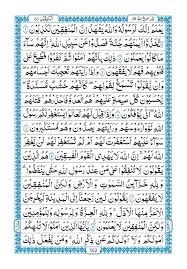 يَعْلَمُ إِنَّكَ لَرَسُولُهُ وَاللَّهُ يَشْهَدُ إِنَّ الْمُنٰفِقِينَ لَكٰذِبُونَ
اتَّخَذُوا أَيْمَانَهُمْ جُنَّةً فَصَدُّوا عَنْ سَبِيلِ اللَّهِ إِنَّهُمْ سَاءَ
مَا كَانُوا يَعْمَلُونَ ذٰلِكَ بِأَنَّهُمْ اٰمَنُوا ثُمَّ كَفَرُوا فَطُبِعَ عَلَى
قُلُوبِهِمْ فَهُمْ لَا يَفْقَهُونَ وَإِذَا رَأَيْتَهُمْ تُعْجِبُكَ أَجْسَامُهُمْ
وَإِنْ يَقُولُوا تَسْمَعْ لِقَوْلِهِمْ كَأَنَّهُمْ خُشُبٌ مُسَنَّدَةٌ
يَحْسَبُونَ كُلَّ صَيْحَةٍ عَلَيْهِمْ هُمُ الْعَدُوُّ فَاحْذَرْهُمْ قٰتَلَهُمُ
اللَّهُ أَنّٰى يُؤْفَكُونَ وَإِذَا قِيلَ لَهُمْ تَعَالَوْا يَسْتَغْفِرْ لَكُمْ
رَسُولُ اللَّهِ لَوَّوْا رُءُوسَهُمْ وَرَأَيْتَهُمْ يَصُدُّونَ وَهُمْ مُسْتَكْبِرُونَ
سَوَاءٌ عَلَيْهِمْ أَسْتَغْفَرْتَ لَهُمْ أَمْ لَمْ تَسْتَغْفِرْ لَهُمْ لَنْ يَغْفِرَ
اللَّهُ لَهُمْ إِنَّ اللَّهَ لَا يَهْدِي الْقَوْمَ الْفٰسِقِينَ هُمُ الَّذِينَ
يَقُولُونَ لَا تُنْفِقُوا عَلَى مَنْ عِنْدَ رَسُولِ اللَّهِ حَتَّى يَنْفَضُّوا
وَلِلَّهِ خَزَائِنُ السَّمٰوٰتِ وَالْأَرْضِ وَلٰكِنَّ الْمُنٰفِقِينَ
لَا يَفْقَهُونَ يَقُولُونَ لَئِنْ رَجَعْنَا إِلَى الْمَدِينَةِ لَيُخْرِجَنَّ
الْأَعَزُّ مِنْهَا الْأَذَلَّ وَلِلَّهِ الْعِزَّةُ وَلِرَسُولِهِ وَلِلْمُؤْمِنِينَ
وَلٰكِنَّ الْمُنٰفِقِينَ لَا يَعْلَمُونَ يٰأَيُّهَا الَّذِينَ اٰمَنُوا لَا تُلْهِكُمْ
أَمْوَالُكُمْ وَلَا أَوْلَادُكُمْ عَنْ ذِكْرِ اللَّهِ وَمَنْ يَفْعَلْ ذٰلِكَ